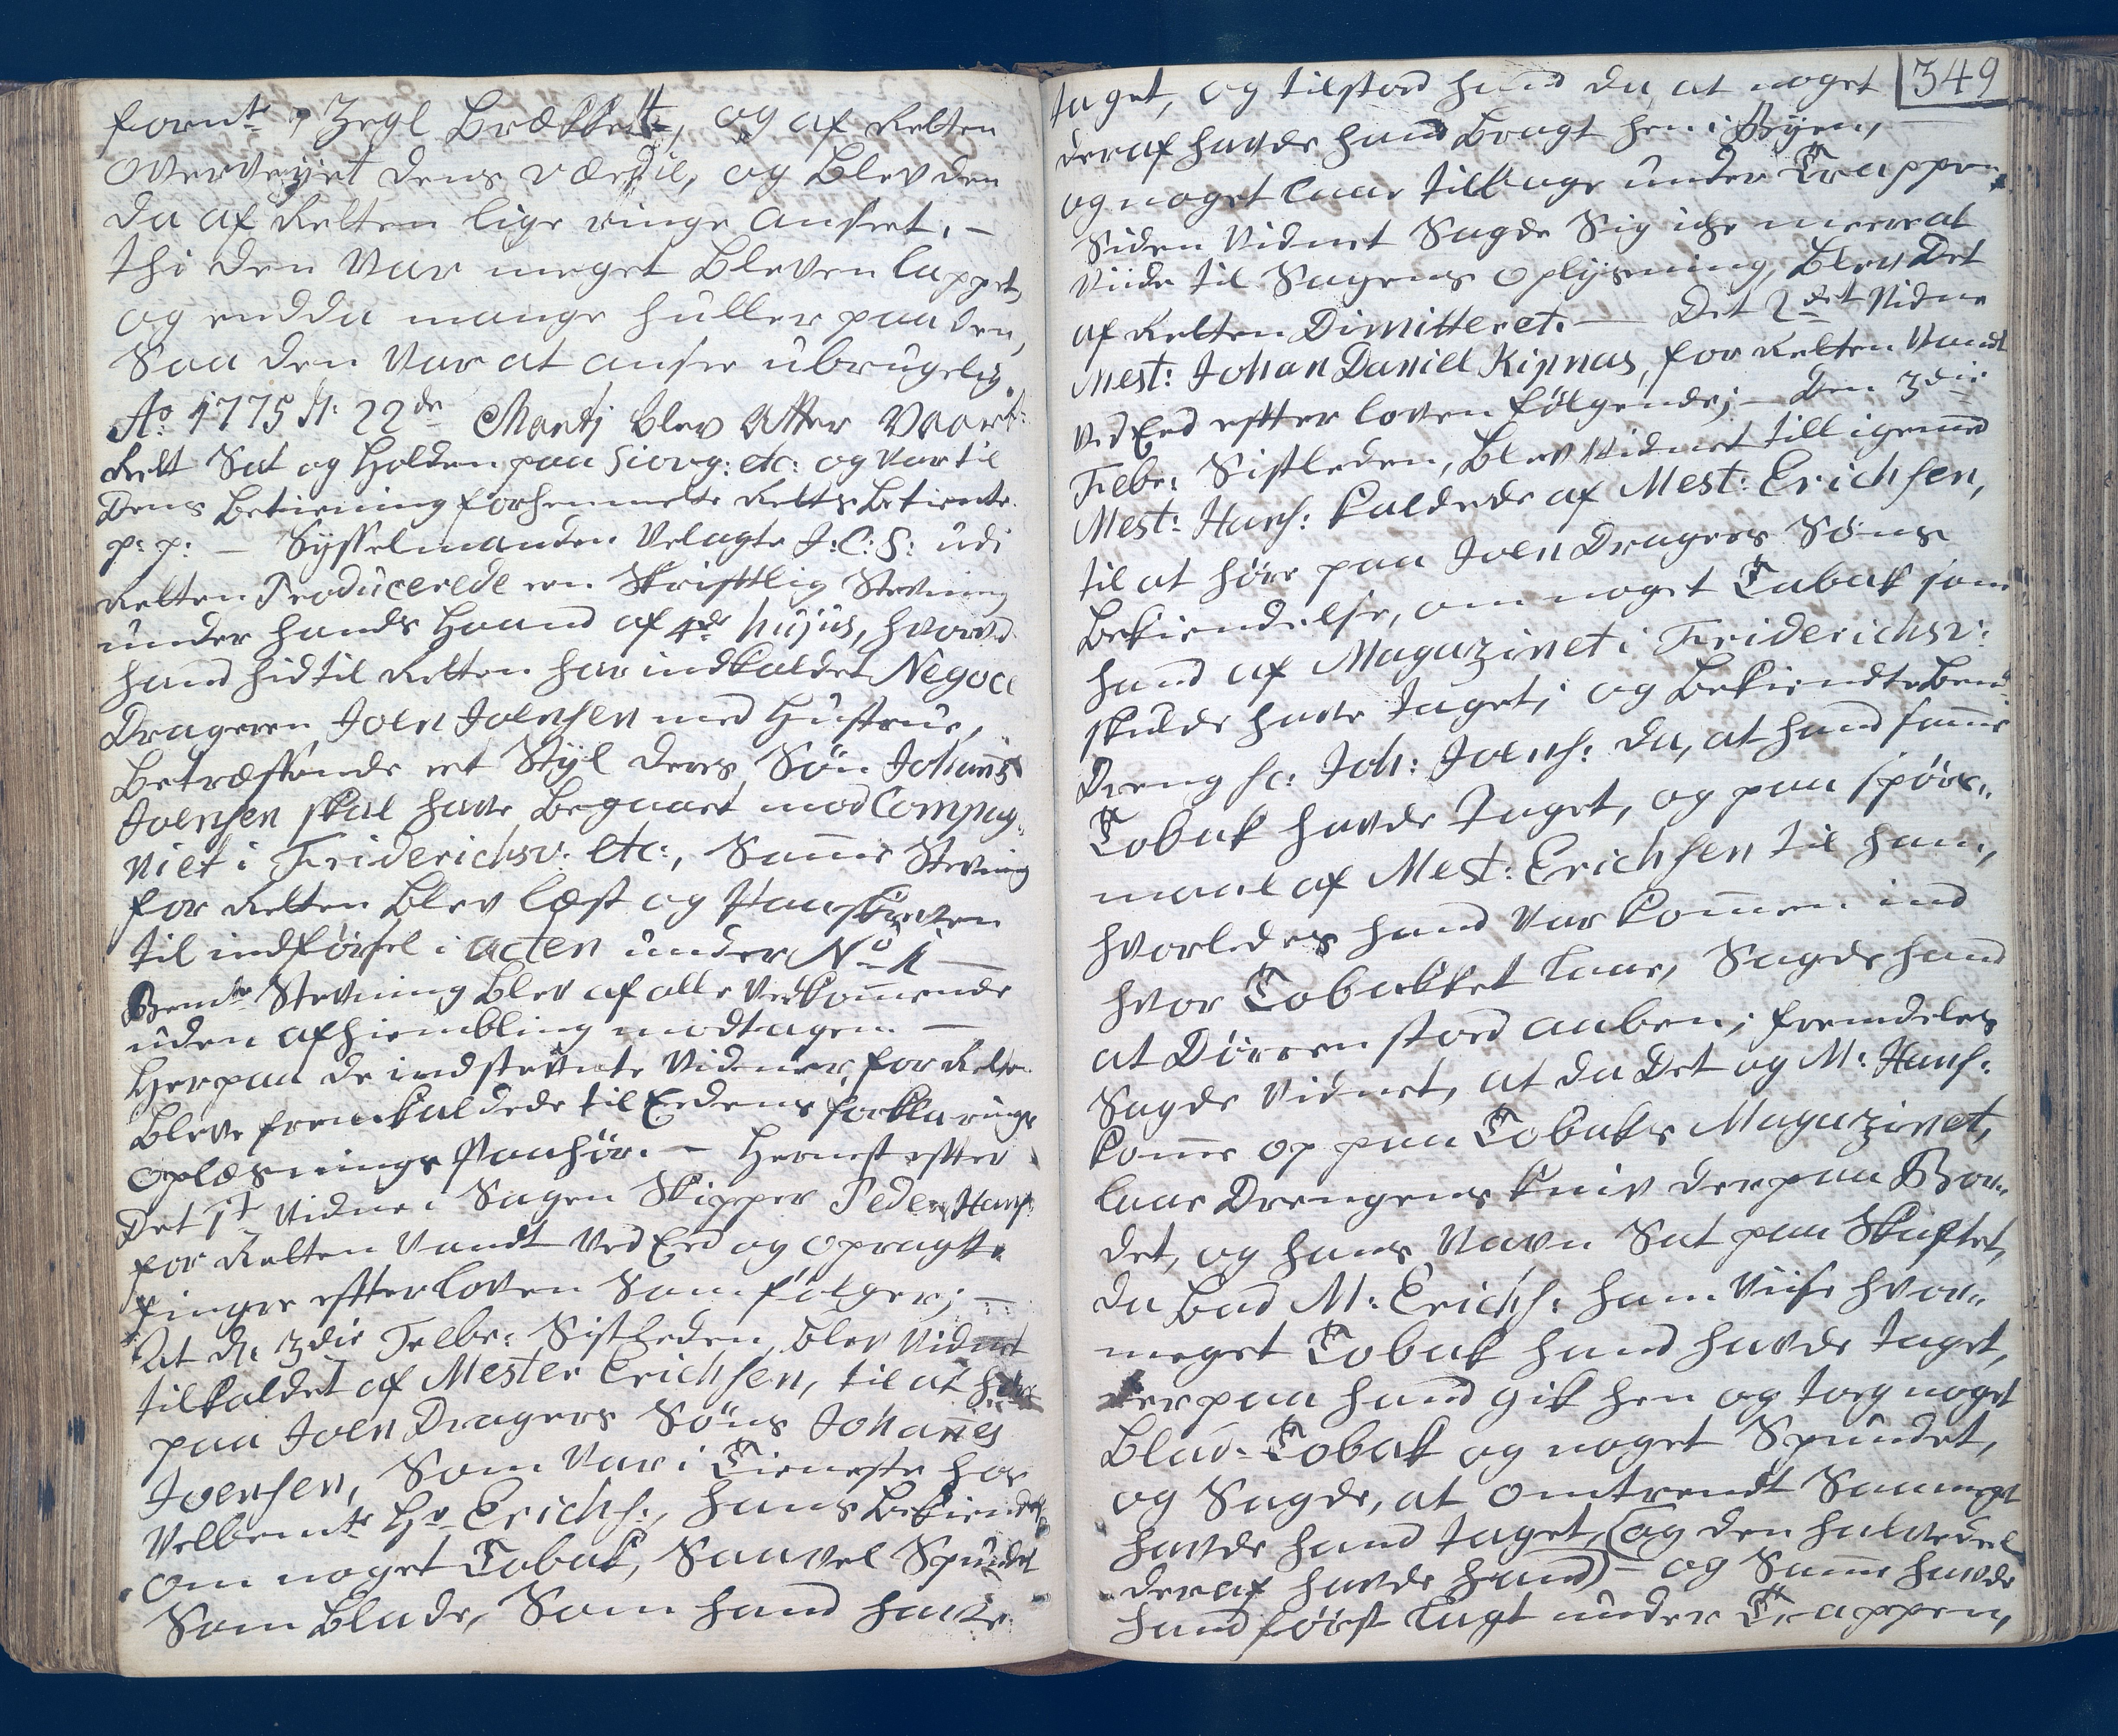 fornte Zegl Brækket, og af Retten
overveyet dens værdie, og Blev den
da af Retten lige ringe anseet. –
thi den Var meget Bleven lappet,
og endda mange huller paa den,
Saa den Var at ansee ubrugelig.
Ao 1775 d: 22de Martj blev Atter Vaart:
Rett Sat og Holden paa Giovg: etc: og Var til
Dens Betiening forhenmelte Retts Betiente.
p: p: – Sysselmanden Velagte J: C: S: udi
Retten Producerede een Skrifftlig Stevning
under hands Haand af 4de hujus, hvorved
hand hidtil Retten har indkaldet Negoce
Drageren Joen Joensen med Hustrue,
Betræffende et Styl deres Søn Johannes
Joensen skal have Begaaet mod Compag„
niet i Friderichsv: etc:, Samme Stevning
for Retten Blev læst og Paaskreven
til indførsel i acten under No 1 —
Bemte Stevning Blev af alle Vedkommende
uden afhiembling modtagen. —
Herpaa de indstevnte Vidner for Retten
Bleve fremkaldede til Eedens forklarings
oplæsnings Paahør. – Hernest efter
Det 1te Vidne i Sagen Skipper Peder Hans:
for Retten Vandt Ved Eed og opragte
fingre efter loven Som følger; —
At d: 3die Febr: Sistleden, blev Vidnet
tilkaldet af Mester Erichsen, til at høre
paa Joen Dragers Søns Johannes
Joensen, Som Var i Tieneste hos
Velbemte Hr Erichs:, hans Bekiendelse
om noget Tobak, Saavel Spundet
Som Blade, Som hand havde
349
taget, og tilstod hand da, at noget
deraf havde hand Bragt hen i Byen,
og noget laae tilbage under Trappen,
Siden Vidnet Sagde Sig icke meere at
Viide til Sagens oplysning, Blev Det
af Retten Dimitteret. — Det 2det Vidne
Mest: Johan Daniel Kipnas, for Retten Vandt
Ved Eed efter loven følgende; – Den 3die
Febr: Sistleden, Blev Vidnet tilligemed
Mest: Hans: kaldede af Mest: Erichsen,
til at høre paa Joen Dragers Søns
Bekiendelse, om noget Tabak som
hand af Magazinet i Friderichsv:
skulde have taget; og Bekiendte Bemte
Dreng sc: Joh: Joens: da, at hand samme
Tobak havde taget, og paa spørs„
maal af Mest: Erichsen til ham,
hvorledes hand Var kommen ind
hvor Tobakket laae, Sagde hand
at Dørren stoed aaben; fremdeles
Sagde Vidnet, at da Det og M: Hans:
komme op paa Tobaks Magazinet,
laae Drengens kniv der paa Bor„
det, og hans Navn Sat paa Skaftet,
da bad M: Erichs: ham Viise hvor„
meget Tobak hand havde taget,
Herpaa hand gik hen og tog noget
Blad-Tobak og noget Spundet,
og Sagde, at omtrendt Saa meget
havde hand taget, (og den halvedeel
deraf havde hand) – og Samme havde
hand først lagt under Trappen,